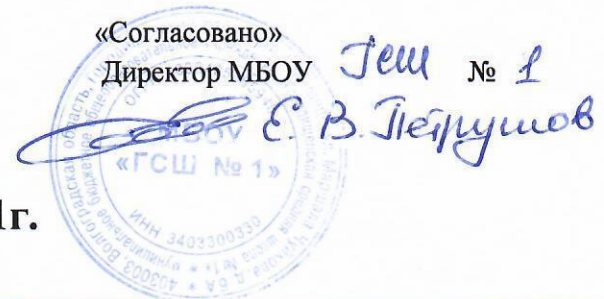 «Согласовано»
Директор МБОУ ГСШ № 1
Е. В. Петрушов
МБОУ
«ГСШ № 1»
ИНН 3403300330
403003, Волгоградская область
1г.